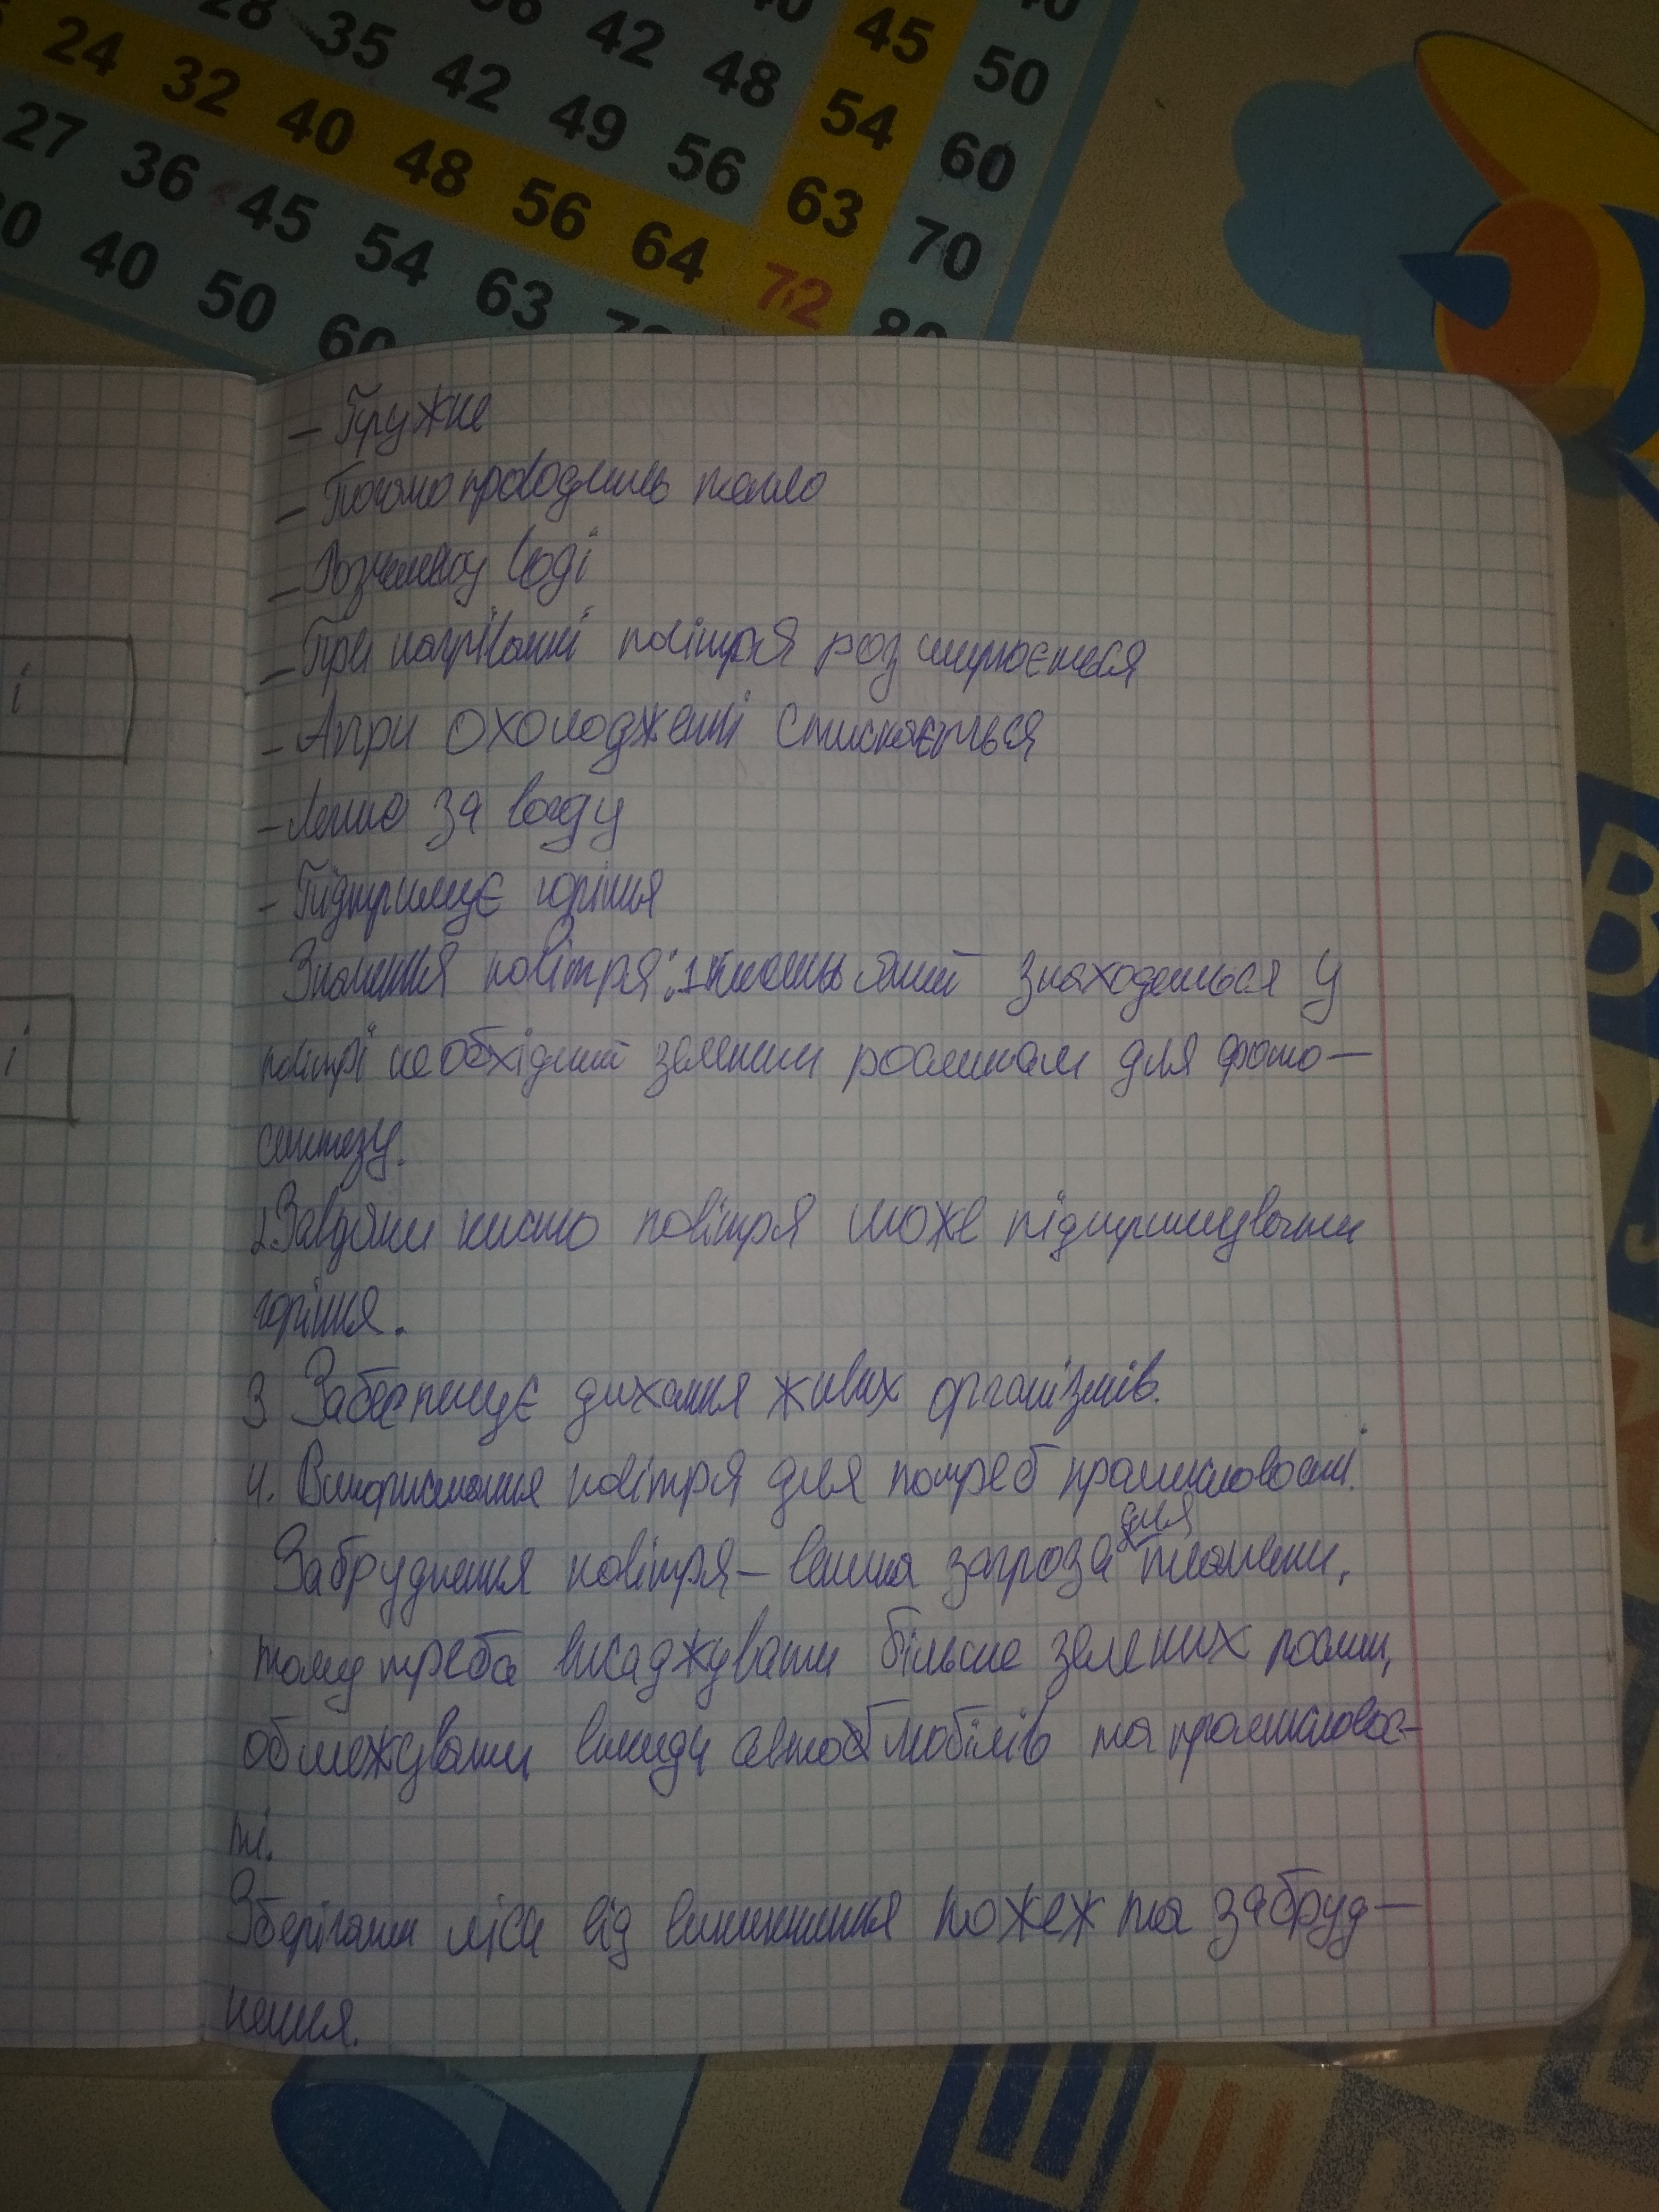 28 35 42 48 45 50
24 32 40 42 49 56 54 60
27 36 45 48 56 64 63 70
40 50 54 63 72 80
60
- Пружне
- Погано проводить тепло
- Розчинну воді
- При нагріванні повітря розширюється
- А при охолодженні стискається
- Легше за воду
- Підтримує горіння
Значення повітря: 1 кисень який знаходеться у
повітрі необхідний зеленим рослинам для фото-
синтезу.
2. Завдяки кисню повітря може підтримувати
горіння.
3 Забеспечує дихання живих організмів.
4. Використання повітря для потреб промисловості.
Забруднення повітря - велика загроза для планети,
тому треба висаджувати більше зелених рослин,
обмежувати викиди автомобілів та промисловос-
ті.
Зберігати ліси від виникнення пожеж та забруд-
нення.
і
і